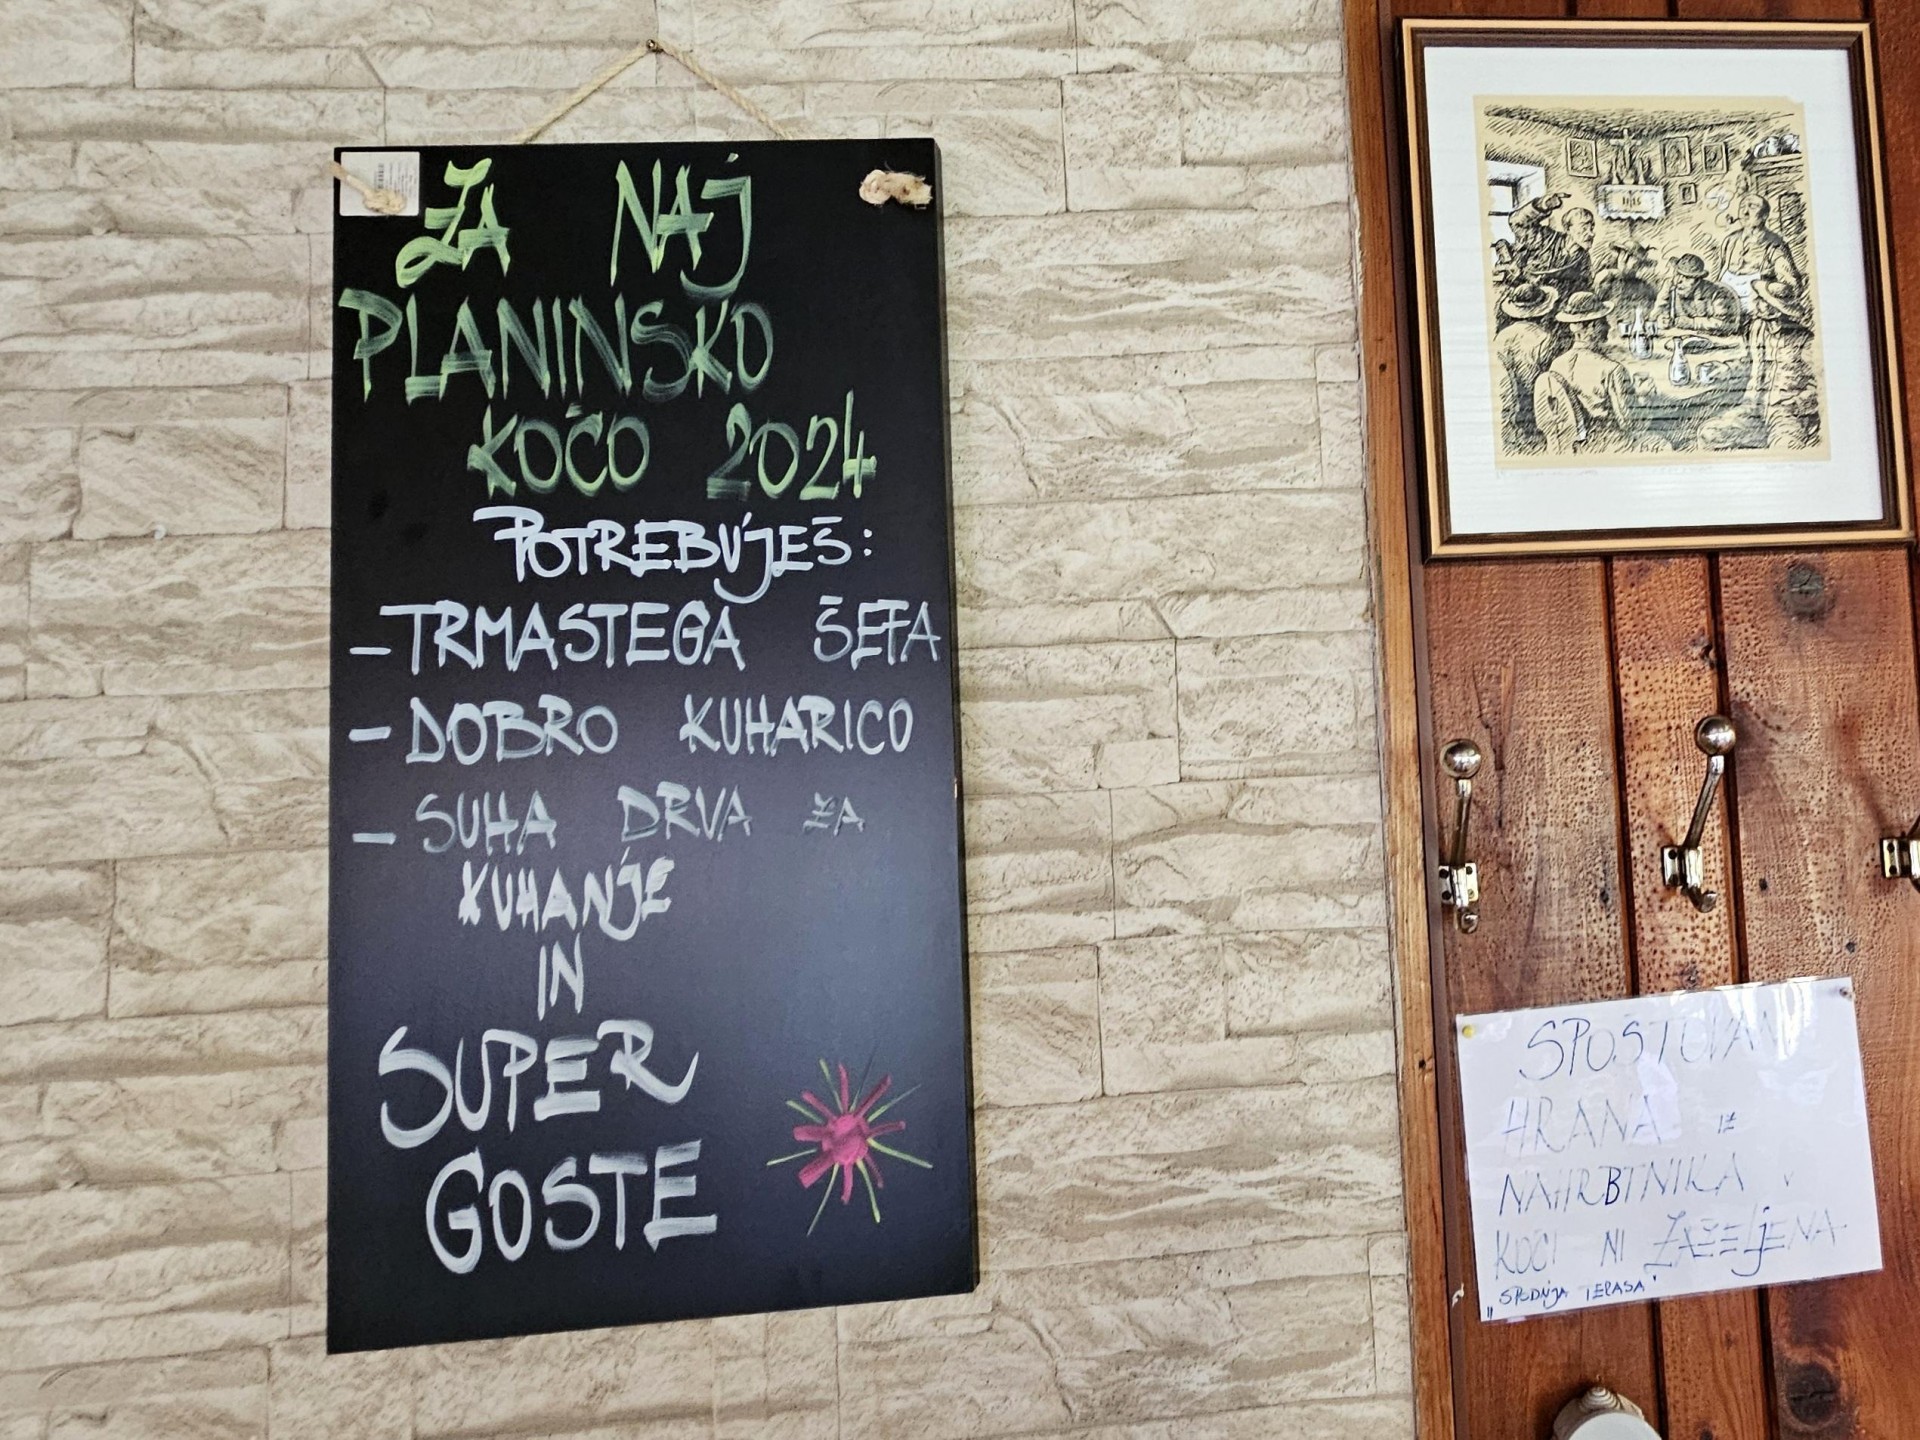 ZA NAJ
PLANINSKO
KOČO 2024
POTREBUJEŠ:
- TRMASTEGA ŠEFA
- DOBRO KUHARICO
- SUHA DRVA ZA
KUHANJE
IN
SUPER
GOSTE
SPOŠTOVANI
HRANA IZ
NAHRBTNIKA V
KOČI NI ZAŽELJENA
"SPODNJA TERASA"